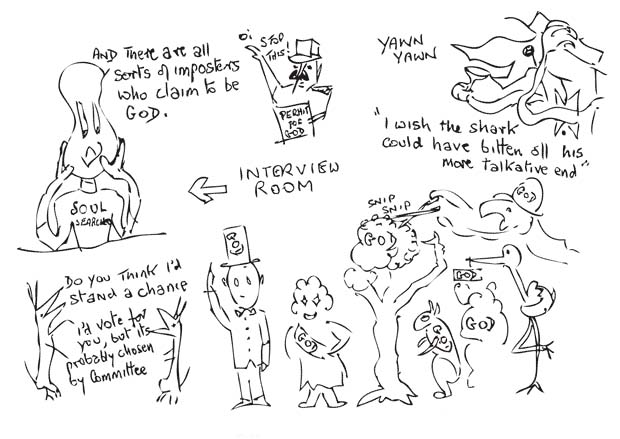 AND There are all
sorts of imposters
who claim to be
GOD.
oi
STOP
THIS!
PERMIT
FOR
GOD
YAWN
YAWN
"I wish the shark
could have bitten off his
more talkative end"
INTERVIEW
ROOM
SOUL
SEARCHING
SNIP
SNIP
GOD
GOD
GOD
GOD
GOD
GOD
GOD
GOD
Do you think I'd
stand a chance
i'd vote for
you, but its
probably chosen
by Committee